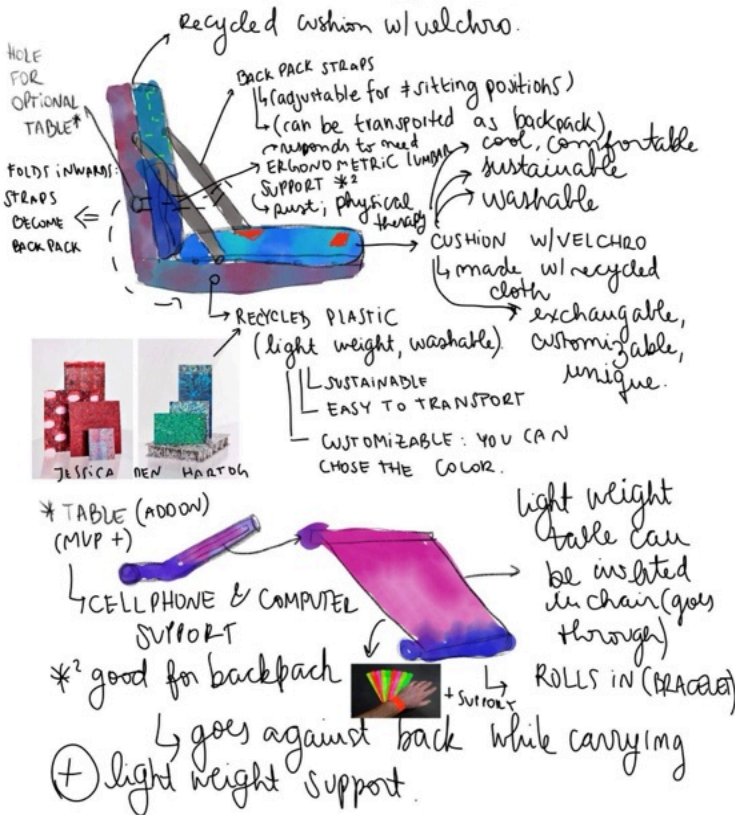 Recycled cushion w/velchro.
HOLE
FOR
OPTIONAL
TABLE*
BACK PACK STRAPS
(adjustable for ≠ sitting positions)
(can be transported as backpack)
responds to need
ERGONOMETRIC LUMBAR
SUPPORT *²
Rust; physical
therapy
cool, comfortable
sustainable
washable
FOLDS INWARDS:
STRAPS
BECOME
BACKPACK
CUSHION W/VELCHRO
made w/recycled
cloth
exchangable,
customizable,
unique.
RECYCLED PLASTIC
(light weight, washable)
SUSTAINABLE
EASY TO TRANSPORT
CUSTOMIZABLE: YOU CAN
CHOSE THE COLOR.
JESSICA DEN HARTOG
* TABLE (ADDON)
(MVP +)
CELLPHONE & COMPUTER
SUPPORT
light weight
table can
be inserted
in chair (goes
through)
ROLLS IN (BRACELET)
+ SUPPORT
*² good for backpack
goes against back while carrying
+ light weight support.